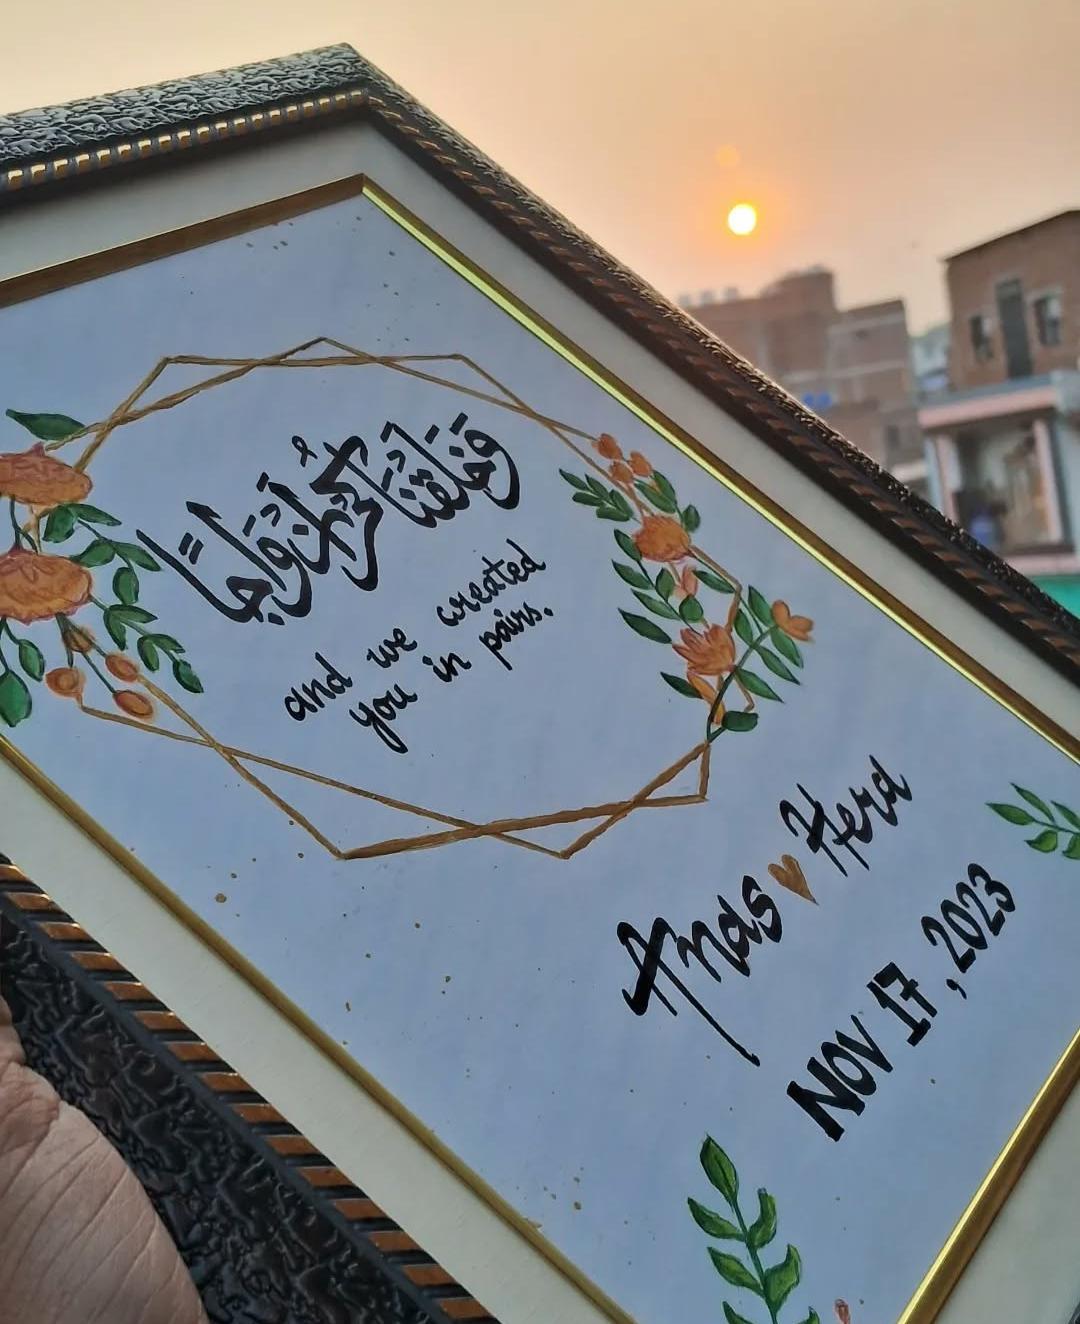 وَخَلَقْنَاكُمْ أَزْوَاجًا
and we created
you in pairs.
Anas Hera
NOV 17, 2023